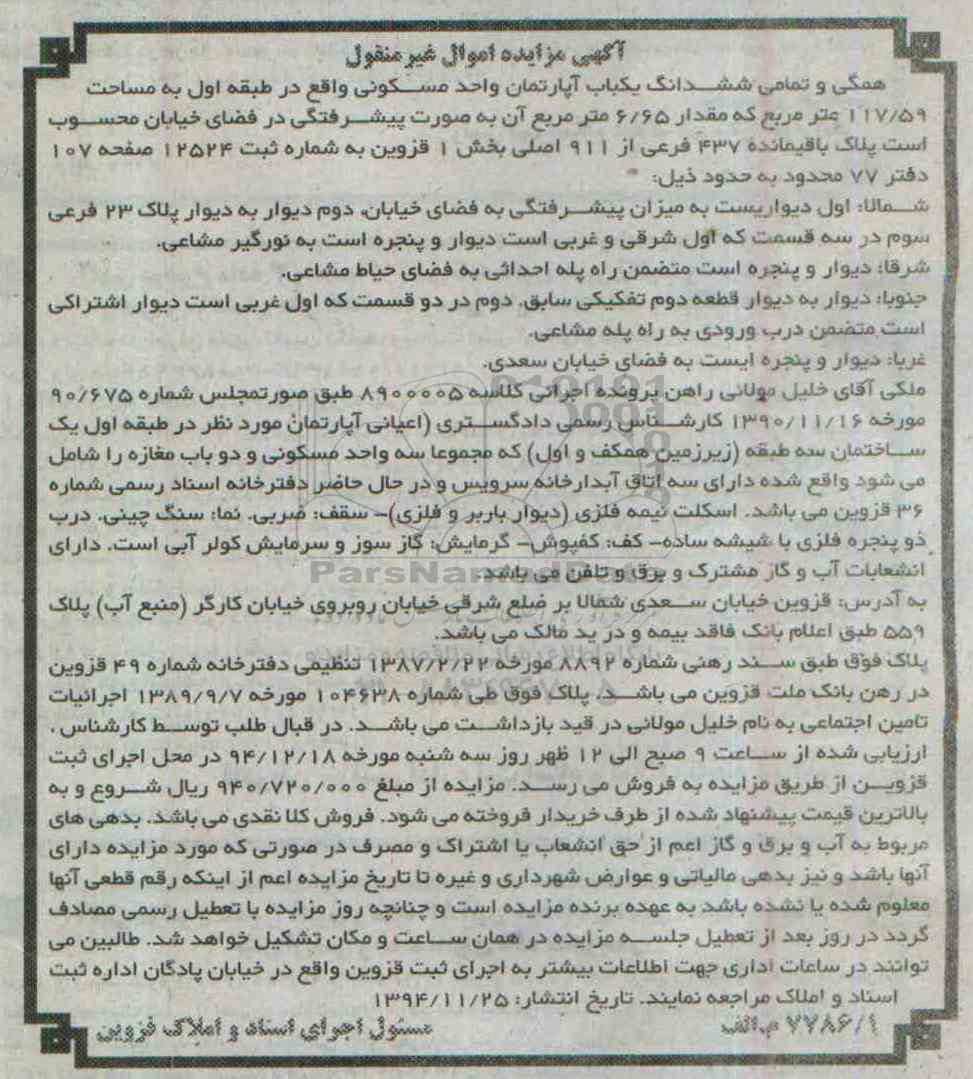 آگهی مزایده اموال غیر منقول
همگی و تمامی ششدانگ یکباب آپارتمان واحد مسکونی واقع در طبقه اول به مساحت
۱۱۷/۵۹ متر مربع که مقدار ۶/۶۵ متر مربع آن به صورت پیشرفتگی در فضای خیابان محسوب
است پلاک باقیمانده ۴۳۷ فرعی از ۹۱۱ اصلی بخش ۱ قزوین به شماره ثبت ۱۲۵۲۴ صفحه ۱۰۷
دفتر ۷۷ محدود به حدود ذیل:
شمالا: اول دیواریست به میزان پیشرفتگی به فضای خیابان. دوم دیوار به دیوار پلاک ۲۳ فرعی
سوم در سه قسمت که اول شرقی و غربی است دیوار و پنجره است به نورگیر مشاعی.
شرقا: دیوار و پنجره است متضمن راه پله احداثی به فضای حیاط مشاعی.
جنوبا: دیوار به دیوار قطعه دوم تفکیکی سابق. دوم در دو قسمت که اول غربی است دیوار اشتراکی
است متضمن درب ورودی به راه پله مشاعی.
غربا: دیوار و پنجره ایست به فضای خیابان سعدی.
ملکی آقای خلیل مولائی راهن پرونده اجرائی کلاسه ۸۹۰۰۰۰۵ طبق صورتمجلس شماره ۹۰/۶۷۵
مورخه ۱۳۹۰/۱۱/۱۶ کارشناس رسمی دادگستری (اعیانی آپارتمان مورد نظر در طبقه اول یک
ساختمان سه طبقه (زیرزمین همکف و اول) که مجموعا سه واحد مسکونی و دو باب مغازه را شامل
می شود واقع شده دارای سه اتاق آبدارخانه سرویس و در حال حاضر دفترخانه اسناد رسمی شماره
۳۶ قزوین می باشد. اسکلت نیمه فلزی (دیوار باربر و فلزی)- سقف: ضربی. نما: سنگ چینی. درب
دو پنجره فلزی با شیشه ساده- کف: کفپوش- گرمایش: گاز سوز و سرمایش کولر آبی است. دارای
انشعابات آب و گاز مشترک و برق و تلفن می باشد.
ParsNamadData
به آدرس: قزوین خیابان سعدی شمالا بر ضلع شرقی خیابان روبروی خیابان کارگر (منبع آب) پلاک
۵۵۹ طبق اعلام بانک فاقد بیمه و در ید مالک می باشد.
پلاک فوق طبق سند رهنی شماره ۸۸۹۲ مورخه ۱۳۸۷/۲/۲۲ تنظیمی دفترخانه شماره ۴۹ قزوین
در رهن بانک ملت قزوین می باشد. پلاک فوق طی شماره ۱۰۴۶۳۸ مورخه ۱۳۸۹/۹/۷ اجرائیات
تامین اجتماعی به نام خلیل مولائی در قید بازداشت می باشد. در قبال طلب توسط کارشناس .
ارزیابی شده از ساعت ۹ صبح الی ۱۲ ظهر روز سه شنبه مورخه ۹۴/۱۲/۱۸ در محل اجرای ثبت
قزوین از طریق مزایده به فروش می رسد. مزایده از مبلغ ۹۴۰/۷۲۰/۰۰۰ ریال شروع و به
بالاترین قیمت پیشنهاد شده از طرف خریدار فروخته می شود. فروش کلا نقدی می باشد. بدهی های
مربوط به آب و برق و گاز اعم از حق انشعاب یا اشتراک و مصرف در صورتی که مورد مزایده دارای
آنها باشد و نیز بدهی مالیاتی و عوارض شهرداری و غیره تا تاریخ مزایده اعم از اینکه رقم قطعی آنها
معلوم شده یا نشده باشد به عهده برنده مزایده است و چنانچه روز مزایده با تعطیل رسمی مصادف
گردد در روز بعد از تعطیل جلسه مزایده در همان ساعت و مکان تشکیل خواهد شد. طالبین می
توانند در ساعات اداری جهت اطلاعات بیشتر به اجرای ثبت قزوین واقع در خیابان پادگان اداره ثبت
اسناد و املاک مراجعه نمایند. تاریخ انتشار: ۱۳۹۴/۱۱/۲۵
۷۷۸۶/۱ م.الف
مسئول اجرای اسناد و املاک قزوین